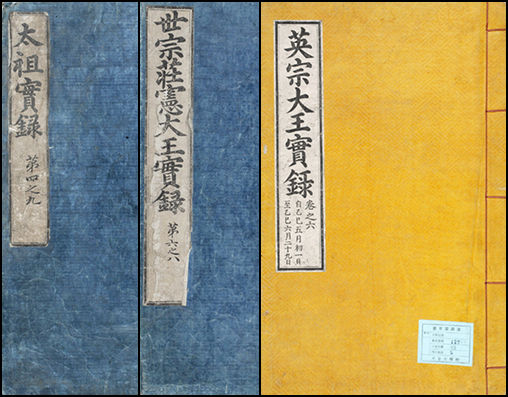 太祖實録
第四之九
世宗莊憲大王實録
第六之八
英宗大王實録
卷之六
自乙巳五月初一日
至乙巳六月二十九日